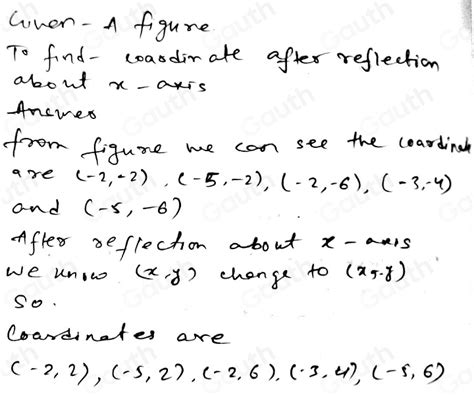 Given - A figure
To find - coordinate after reflection
about x - axis
Answer
from figure we can see the coordinate
are (-2,-2), (-5,-2), (-2,-6), (-3,-4)
and (-5, -6)
After reflection about x - axis
we know (x,y) change to (x,-y)
so.
Coordinates are
(-2, 2), (-5, 2), (-2, 6), (-3, 4), (-5, 6)